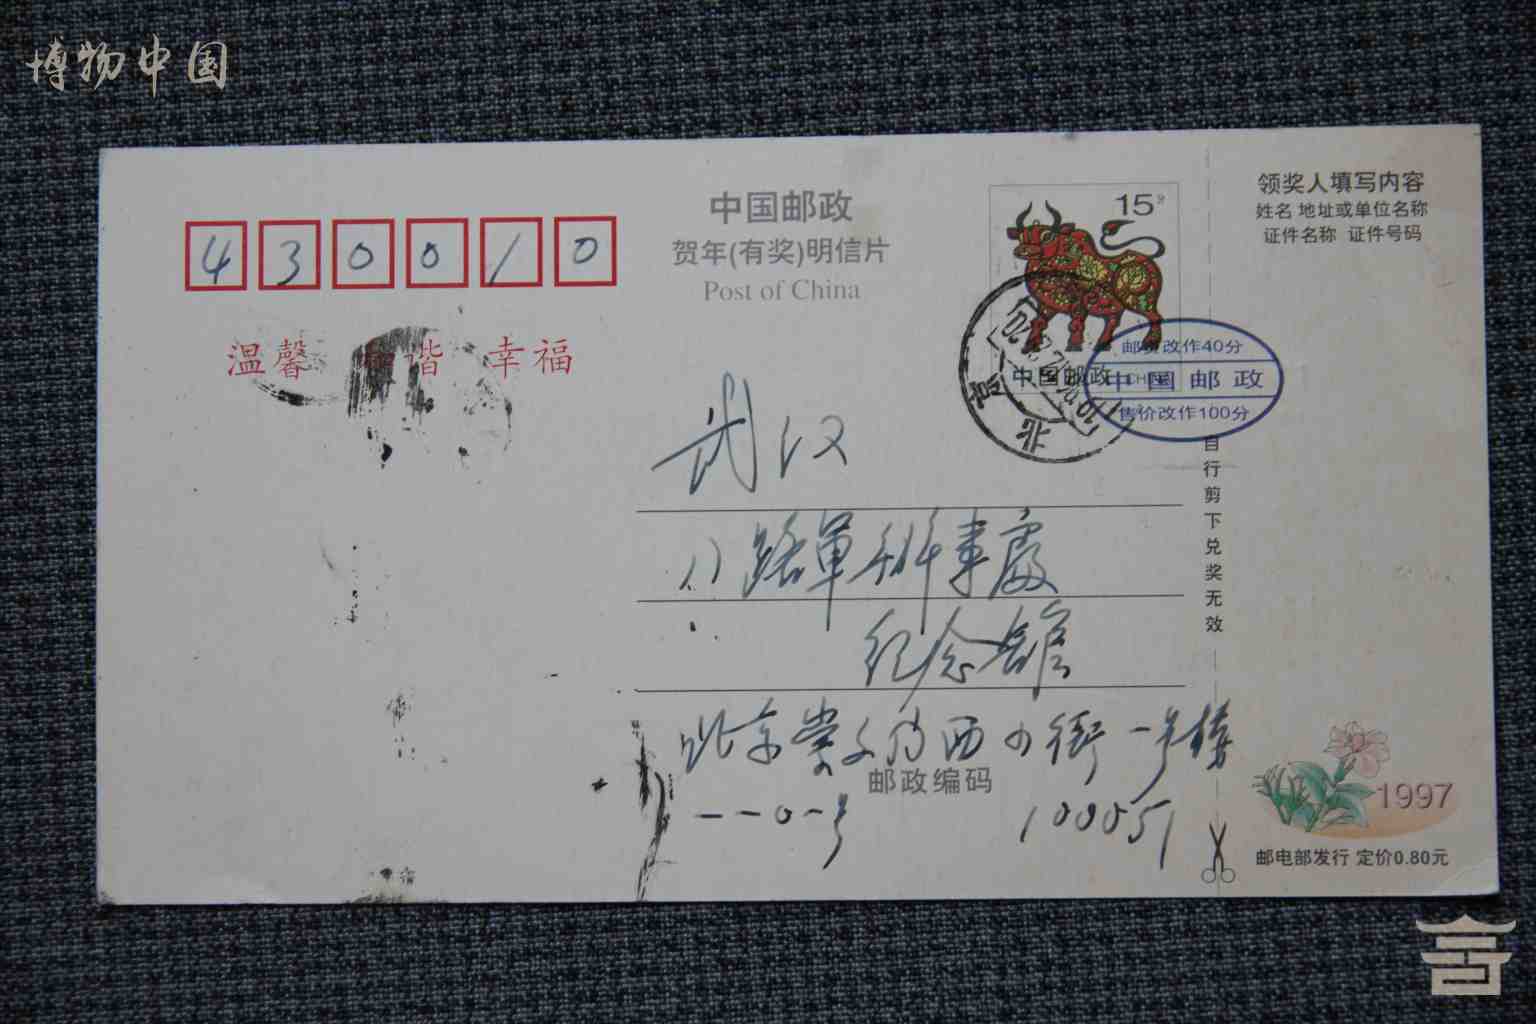 博物中国
430010
中国邮政
贺年(有奖)明信片
Post of China
15分
领奖人填写内容
姓名 地址或单位名称
证件名称 证件号码
温馨 和谐 幸福
邮资改作40分
中国邮政
中国邮政
售价改作100分
北京
武汉
八路軍辦事處
纪念館
北京崇文门西大街一号楼
一一0一号
邮政编码
100051
自行剪下兑奖无效
1997
邮电部发行 定价0.80元